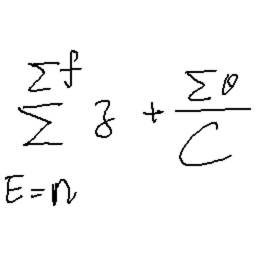 \sum_{E=n}^{\Sigma f} z + \frac{\Sigma \theta}{C}